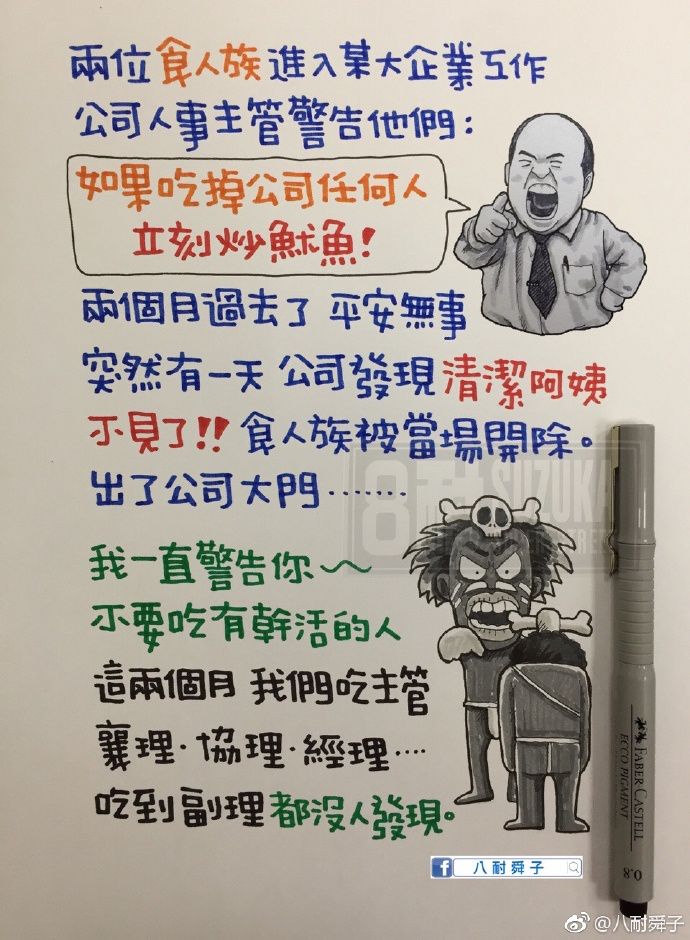 兩位食人族進入某大企業工作
公司人事主管警告他們:
如果吃掉公司任何人
立刻炒魷魚!
兩個月過去了 平安無事
突然有一天 公司發現清潔阿姨
不見了!! 食人族被當場開除。
出了公司大門‧‧‧‧‧‧‧
我一直警告你~~
不要吃有幹活的人
這兩個月 我們吃主管
襄理‧協理‧經理‧‧‧‧
吃到副理都沒人發現。
8耐 SUZUKA
FABER-CASTELL
ECCO PIGMENT
0.8
f 八耐舜子
@八耐舜子